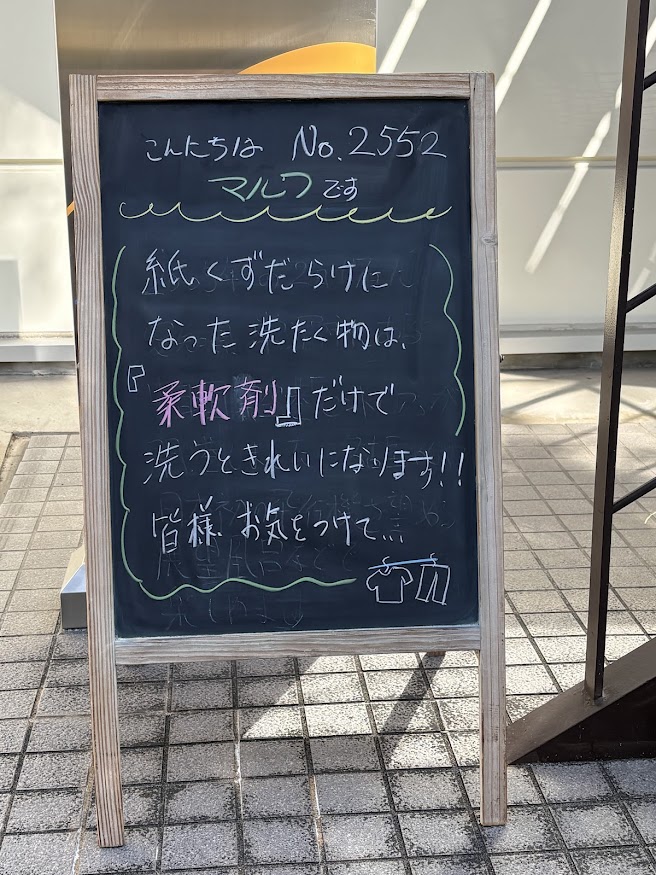 こんにちは No.2552
マルフです
紙くずだらけに
なった洗たく物は、
『柔軟剤』だけで
洗うときれいになります!!
皆様 お気をつけて...